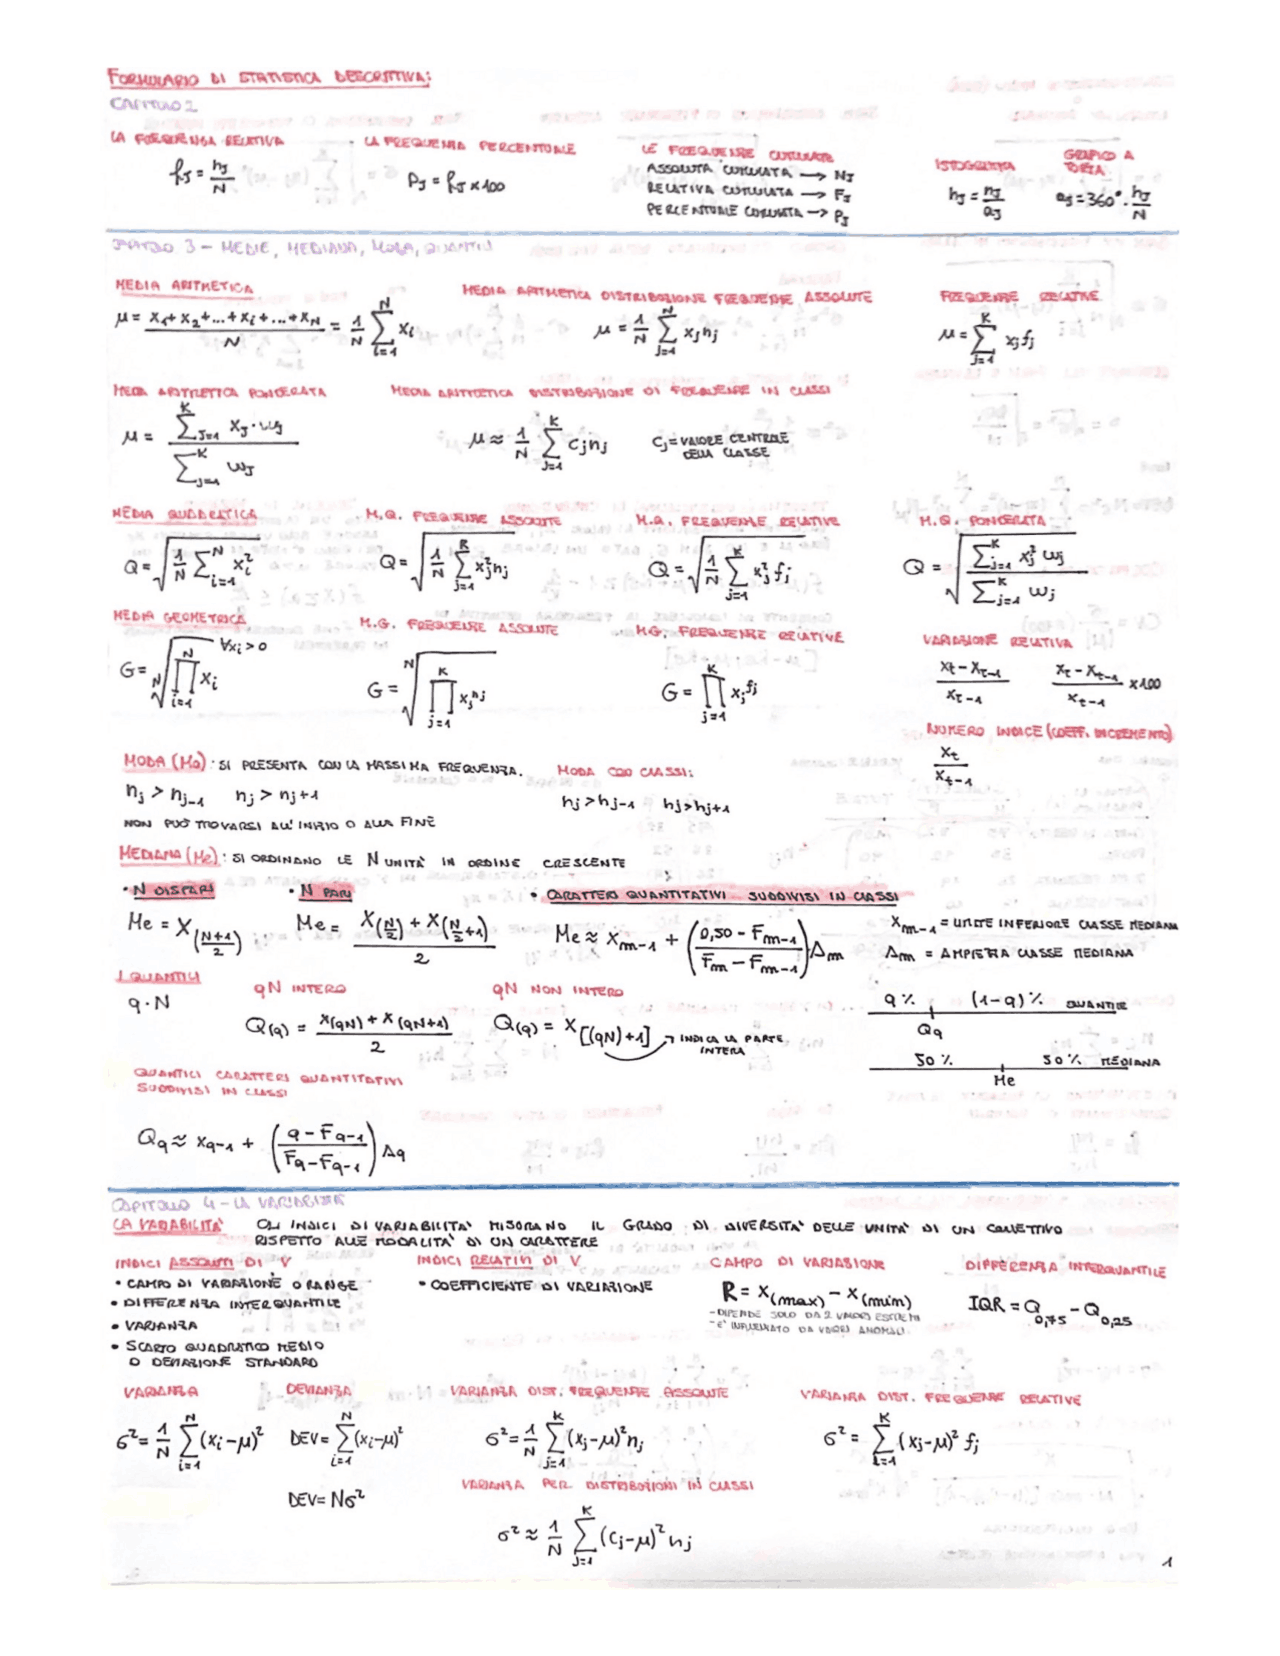 FORMULARIO DI STATISTICA DESCRITTIVA:
CAPITOLO 2
LA FREQUENZA RELATIVA
fJ = nJ/N
LA FREQUENZA PERCENTUALE
PJ = fJ x 100
LE FREQUENZE CUMULATE
ASSOLUTA CUMULATA → NJ
RELATIVA CUMULATA → FJ
PERCENTUALE CUMULATA → PJ
ISTOGRAMMA
hJ = nJ/aJ
GRAFICO A TORTA
aJ = 360° · nJ/N
CAPITOLO 3 - MEDIE, MEDIANA, MODA, QUANTILI
MEDIA ARITMETICA
μ = (x1 + x2 + ... + xi + ... + xN)/N = 1/N ∑(i=1)^N xi
MEDIA ARITMETICA DISTRIBUZIONE FREQUENZE ASSOLUTE
μ = 1/N ∑(j=1)^N xj nj
FREQUENZE RELATIVE
μ = ∑(j=1)^K xj fj
MEDIA ARITMETICA PONDERATA
μ = ∑(J=1)^K xJ · wJ / ∑(J=1)^K wJ
MEDIA ARITMETICA DISTRIBUZIONE DI FREQUENZE IN CLASSI
μ ≈ 1/N ∑(j=1)^K cj nj
CJ = VALORE CENTRALE
DELLA CLASSE
MEDIA QUADRATICA
Q = √(1/N ∑(i=1)^N xi²)
M.Q. FREQUENZE ASSOLUTE
Q = √(1/N ∑(j=1)^K xj² nj)
M.Q. FREQUENZE RELATIVE
Q = √(1/N ∑(j=1)^K xj² fj)
M.Q. PONDERATA
Q = √(∑(j=1)^K xj² wj / ∑(j=1)^K wj)
MEDIA GEOMETRICA
G = N√(∏(i=1)^N xi) ∀xi > 0
M.G. FREQUENZE ASSOLUTE
G = N√(∏(j=1)^K xj^nj)
M.G. FREQUENZE RELATIVE
G = ∏(j=1)^K xj^fj
VARIAZIONE RELATIVA
(xt - xt-1)/xt-1 (xt - xt-1)/xt-1 x100
NUMERO INDICE (COEFF. INCREMENTO)
xt/xt-1
MODA (Mo): SI PRESENTA CON LA MASSIMA FREQUENZA.
nj > nj-1 nj > nj+1
NON PUÒ TROVARSI ALL'INIZIO O ALLA FINE
MODA CON CLASSI:
hj > hj-1 hj > hj+1
MEDIANA (Me): SI ORDINANO LE N UNITÀ IN ORDINE CRESCENTE
• N DISPARI
Me = X((N+1)/2)
• N PARI
Me = (X(N/2) + X(N/2+1))/2
• CARATTERI QUANTITATIVI SUDDIVISI IN CLASSI
Me ≈ Xm-1 + ((0,50 - Fm-1)/(Fm - Fm-1)) Δm
Xm-1 = LIMITE INFERIORE CLASSE MEDIANA
Δm = AMPIEZZA CLASSE MEDIANA
I QUANTILI
q · N
qN INTERO
Q(q) = (X(qN) + X(qN+1))/2
qN NON INTERO
Q(q) = X[(qN)+1] → INDICA LA PARTE
INTERA
q % (1-q) % QUANTILE
Qq
50 % 50 % MEDIANA
Me
QUANTILI CARATTERI QUANTITATIVI
SUDDIVISI IN CLASSI
Qq ≈ xq-1 + ((q - Fq-1)/(Fq - Fq-1)) Δq
CAPITOLO 4 - LA VARIABILITÀ
LA VARIABILITÀ GLI INDICI DI VARIABILITÀ MISURANO IL GRADO DI DIVERSITÀ DELLE UNITÀ DI UN COLLETTIVO
RISPETTO ALLE MODALITÀ DI UN CARATTERE
INDICI ASSOLUTI DI V
• CAMPO DI VARIAZIONE O RANGE
• DIFFERENZA INTERQUANTILE
• VARIANZA
• SCARTO QUADRATICO MEDIO
O DEVIAZIONE STANDARD
INDICI RELATIVI DI V
• COEFFICIENTE DI VARIAZIONE
CAMPO DI VARIAZIONE
R = X(max) - X(min)
- DIPENDE SOLO DA 2 VALORI ESTREMI
- E' INFLUENZATO DA VALORI ANOMALI.
DIFFERENZA INTERQUANTILE
IQR = Q0,75 - Q0,25
VARIANZA
σ² = 1/N ∑(i=1)^N (xi - μ)²
DEVIANZA
DEV = ∑(i=1)^N (xi - μ)²
DEV = Nσ²
VARIANZA DIST. FREQUENZE ASSOLUTE
σ² = 1/N ∑(j=1)^K (xj - μ)² nj
VARIANZA DIST. FREQUENZE RELATIVE
σ² = ∑(i=1)^K (xj - μ)² fj
VARIANZA PER DISTRIBUZIONI IN CLASSI
σ² ≈ 1/N ∑(j=1)^K (cj - μ)² nj
1